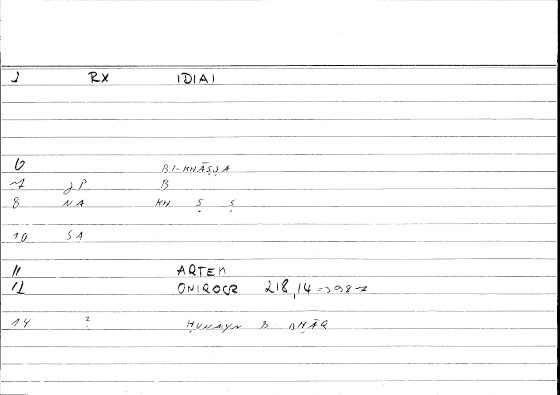 1 RX IDIAI
6 BI-KHĀṢṢA
7 JP B
8 NA KH Ṣ Ṣ
10 SA
11 ARTEM
12 ONIROCR 218,14
14 ? ḤUNAYN B.